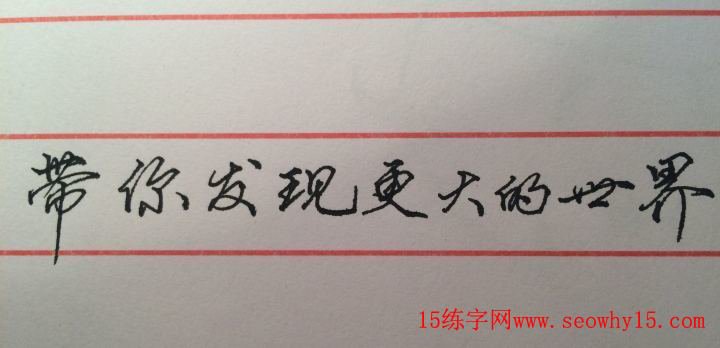 带你发现更大的世界
15练字网www.seowhy15.com